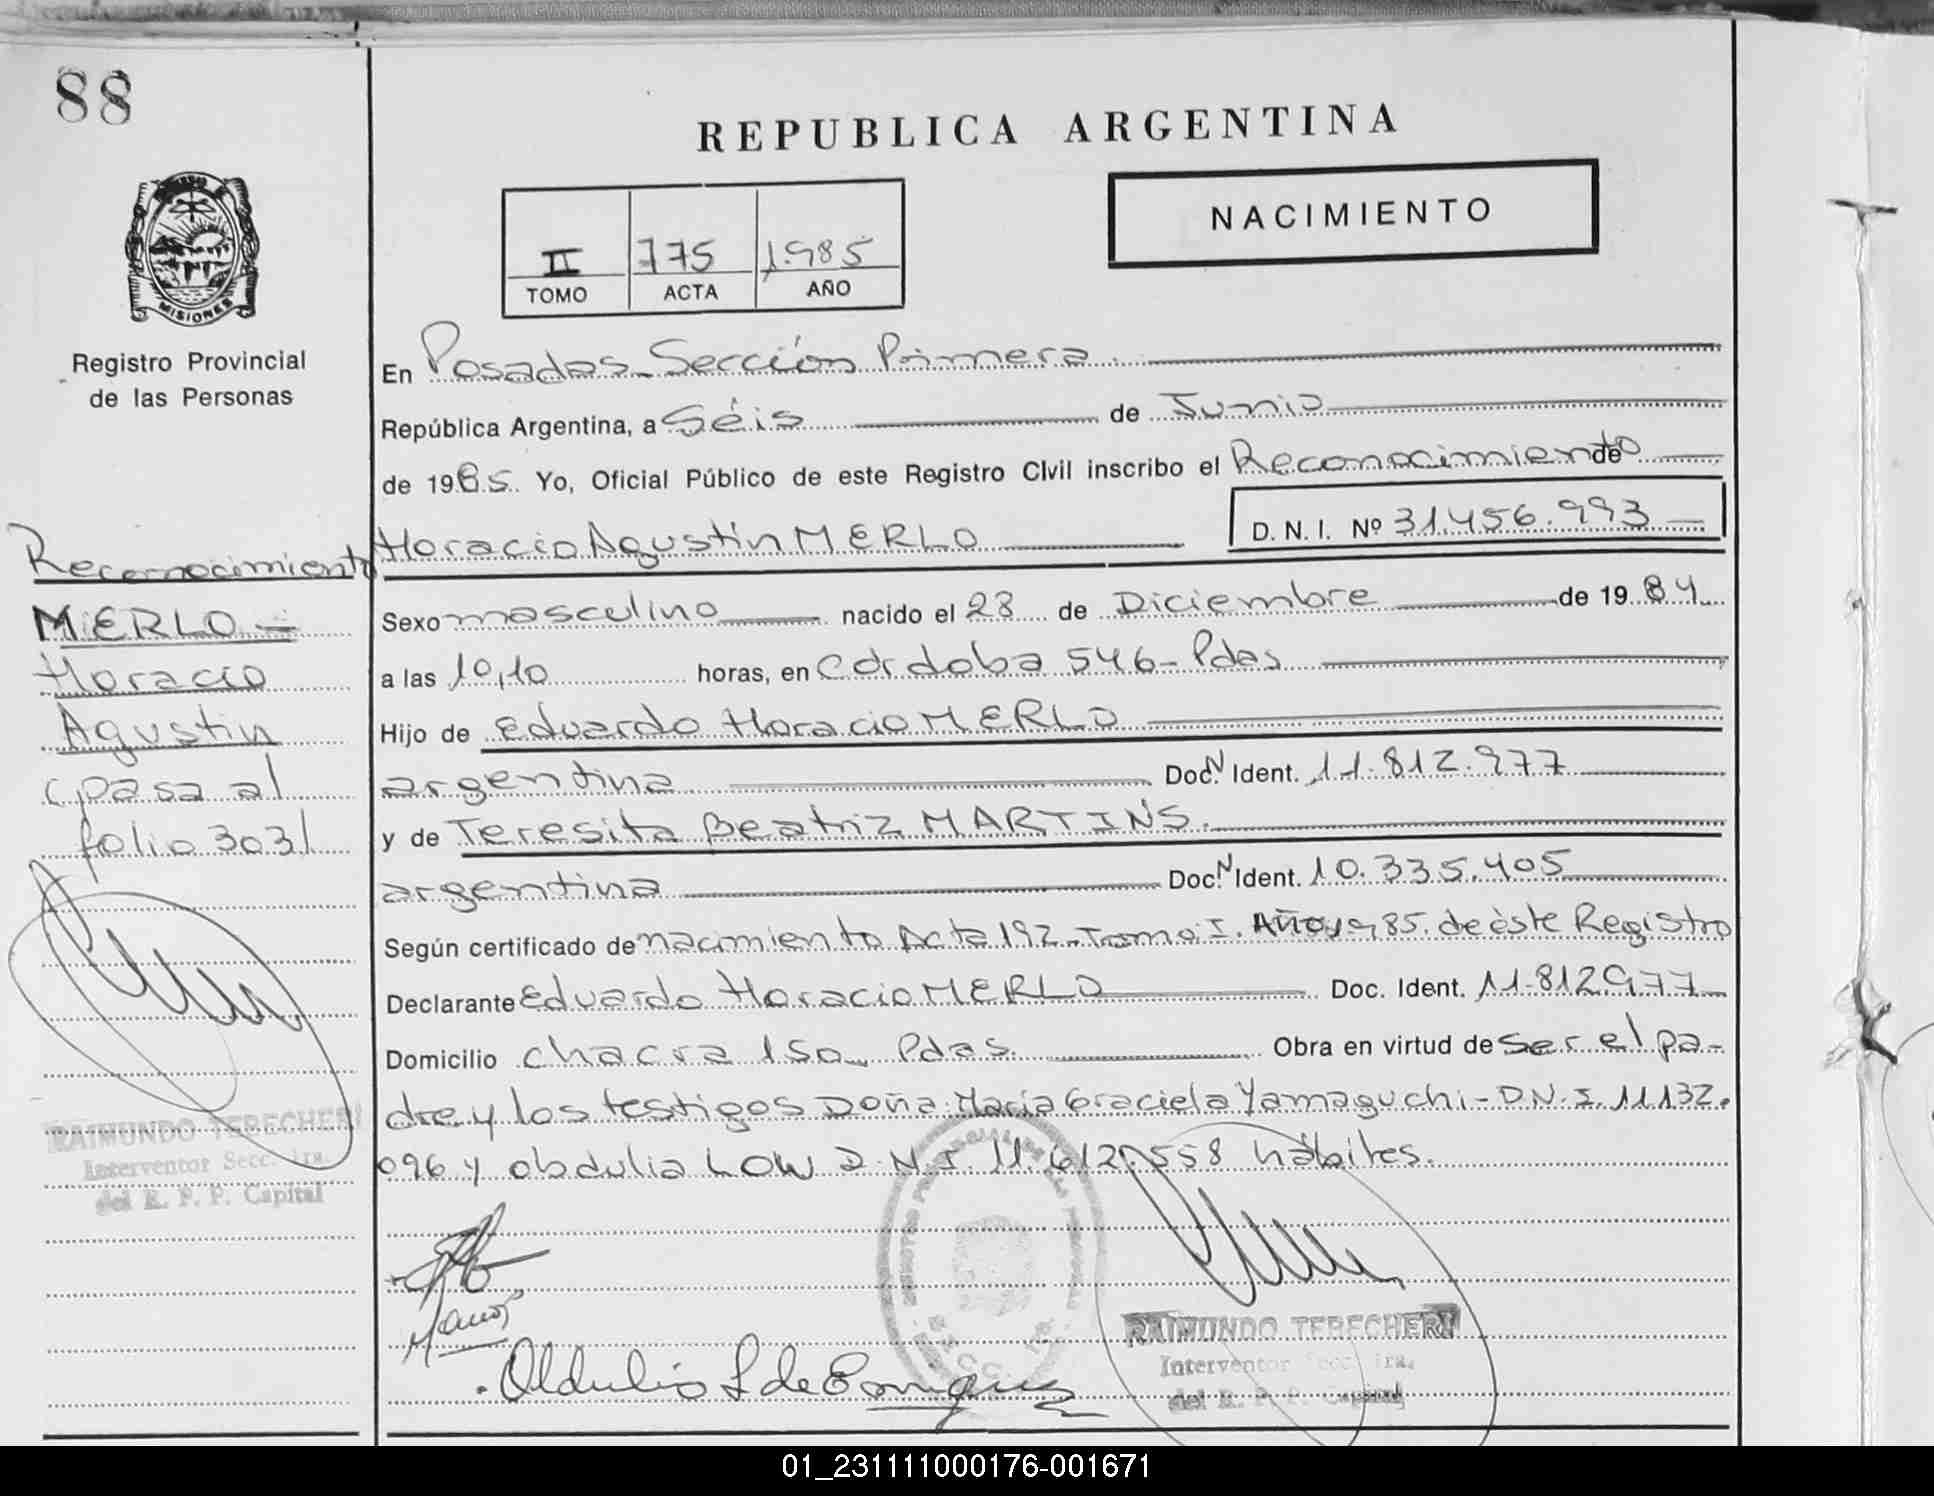 88
REPUBLICA ARGENTINA
NACIMIENTO
II 775 1.985
TOMO ACTA AÑO
MISIONES
Registro Provincial
de las Personas
En Posadas - Sección Primera
República Argentina, a Séis de Junio
de 1985. Yo, Oficial Público de este Registro Civil inscribo el Reconocimiento de
Horacio Agustin MERLO D. N. I. Nº 31.456.993
Sexo masculino nacido el 28 de Diciembre de 1984
a las 10,10 horas, en Córdoba 546 - Pdas
Hijo de Eduardo Horacio MERLO
argentina Doc. N Ident. 11.812.977
y de Teresita Beatriz MARTINS.
argentina Doc. N Ident. 10.335.405
Según certificado de nacimiento Acta 192 - Tomo I. Año 1985. de éste Registro
Declarante Eduardo Horacio MERLO Doc. Ident. 11.812977
Domicilio chacra 150 Pdas. Obra en virtud de Ser el pa-
dre y los testigos Doña María Graciela Yamaguchi - D.N.I. 11132.
096 y obdulia LOW D.N.I. 11.612.558 hábiles.
Reconocimiento
MERLO -
Horacio
Agustin
(pasa al
folio 303)
RAIMUNDO TERECHERI
Interventor Secc. 1ra.
del R. P. P. Capital
RAIMUNDO TERECHERI
Interventor Secc. 1ra.
del R. P. P. Capital
01_231111000176-001671